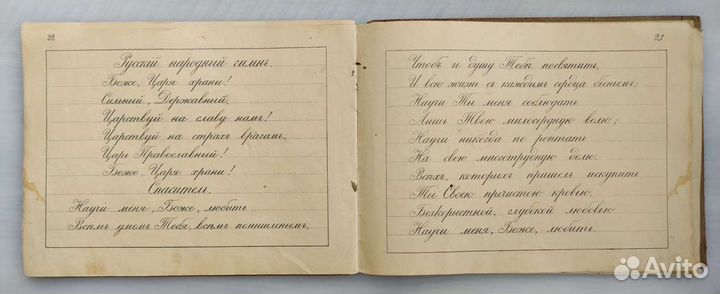 22.
Русскій народный гимнъ.
Боже, Царя храни!
Сильный, Державный,
Царствуй на славу намъ!
Царствуй на страхъ врагамъ,
Царь Православный!
Боже, Царя храни!
Спаситель.
Научи меня, Боже, любить
Всѣмъ умомъ Тебя, всѣмъ помышленіемъ,
23
Чтобъ и душу Тебѣ посвятить,
И всю жизнь съ каждымъ сердца біеньемъ;
Научи Ты меня соблюдать
Лишь Твою милосердную волю;
Научи никогда не роптать
На свою многотрудную долю.
Всѣхъ, которыхъ пришелъ искупить
Ты Своею пречистою кровью,
Безкорыстной, глубокой любовью
Научи меня, Боже, любить.
Avito